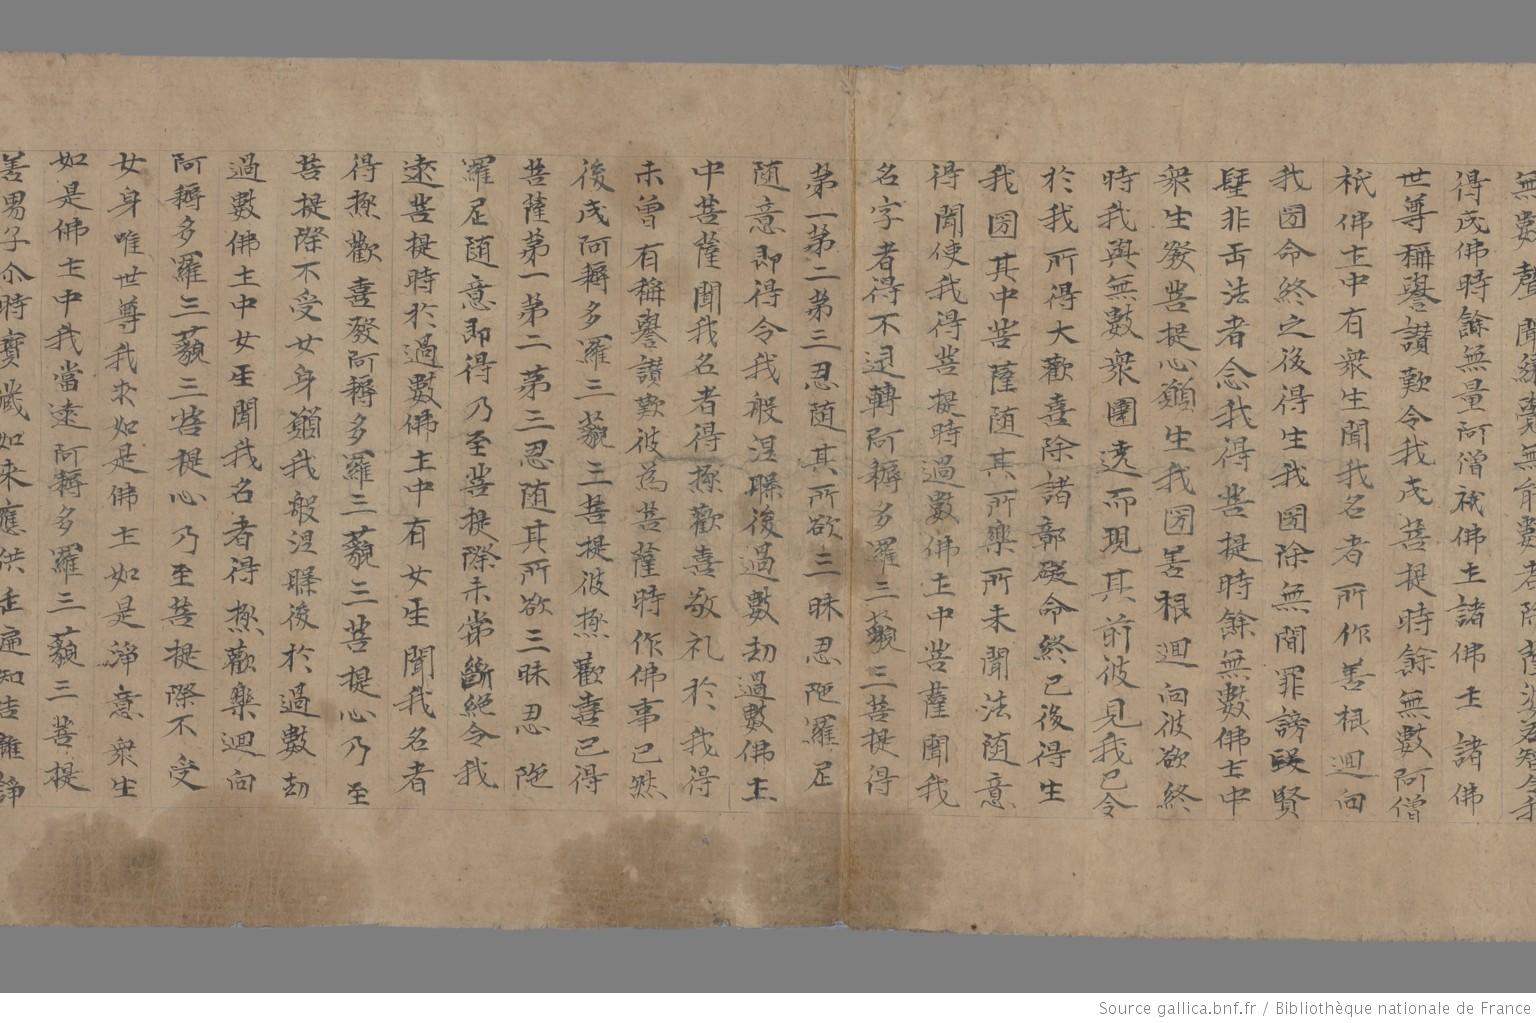 無數聲聞緣覺無能數者除薩波若智令我
得成佛時餘無量阿僧祇佛土諸佛土諸佛
世尊稱譽讃歎令我成菩提時餘無數阿僧
祇佛土中有衆生聞我名者所作善根迴向
我國命終之後得生我國除無間罪謗毀賢
聖非正法者念我得菩提時餘無數佛土中
衆生發菩提心願生我國善根迴向彼欲終
時我與無數衆圍遶而現其前彼見我已令
於我所得大歡喜除諸鄣礙命終已後得生
我國其中菩薩随其所樂所未聞法随意
得聞使我得菩提時過數佛土中菩薩聞我
名字者得不退轉阿耨多羅三藐三菩提得
第一第二第三忍随其所欲三昧忍陁羅尼
随意即得令我般涅槃後過數劫過數佛土
中菩薩聞我名者得㮇歡喜敬礼於我得
未曽有稱譽讃歎彼爲菩薩時作佛事已然
後成阿耨多羅三藐三菩提彼㮇歡喜已得
菩薩第一第二第三忍随其所欲三昧忍陁
羅尼随意即得乃至菩提際未常斷絶令我
逮菩提時於過數佛土中有女生聞我名者
得㮇歡喜發阿耨多羅三藐三菩提心乃至
菩提際不受女身願我般涅槃後於過數劫
過數佛土中女生聞我名者得㮇歡樂迴向
阿耨多羅三藐三菩提心乃至菩提際不受
女身唯世尊我求如是佛土如是淨意衆生
如是佛土中我當逮阿耨多羅三藐三菩提
善男子尒時寶藏如来應供正遍知告離諍